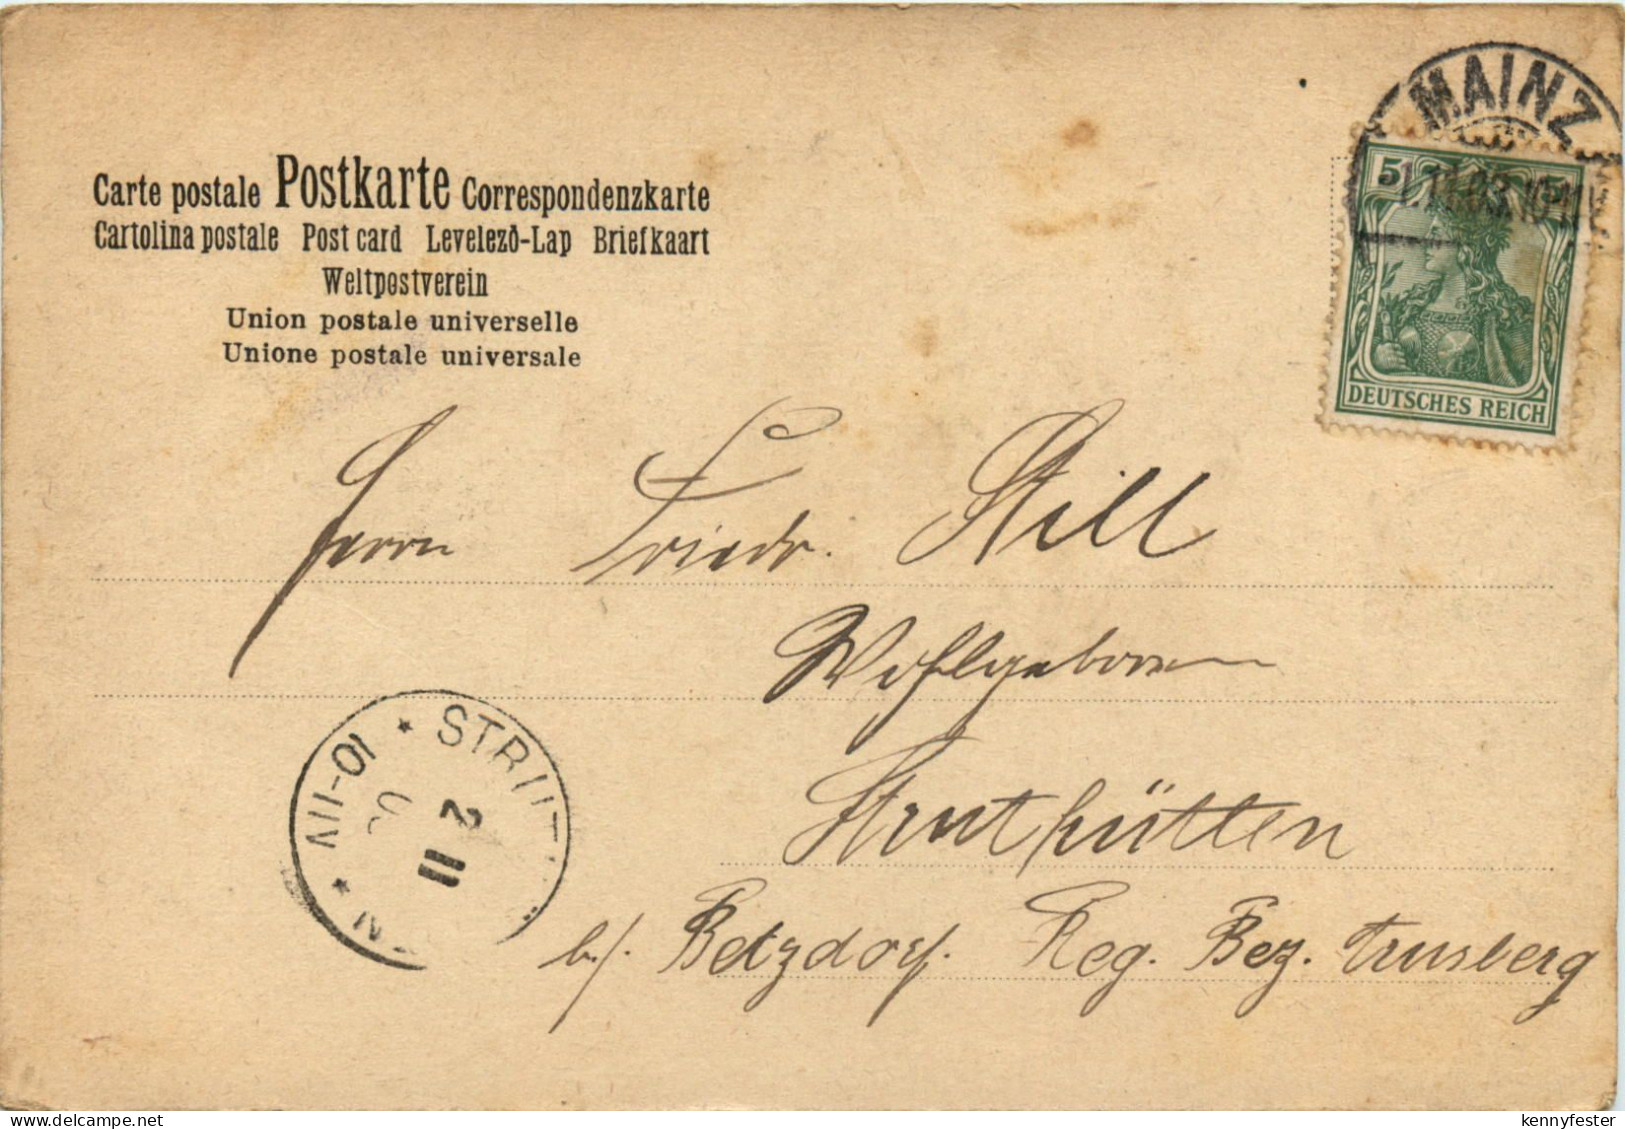 Carte postale Postkarte Correspondenzkarte
Cartolina postale Post card Levelező-Lap Briefkaart
Weltpostverein
Union postale universelle
Unione postale universale
MAINZ
1.11.03.10-11
5 5
DEUTSCHES REICH
Herrn Friedr. Still
Wohlgeboren
Struthütten
b/. Betzdorf. Reg. Bez. Arnsberg
STRUT
2 11
10-11V
EN
delcampe.net
kennyfester